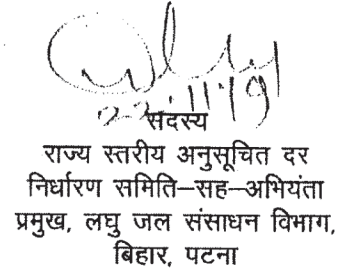 22.11.19
सदस्य
राज्य स्तरीय अनुसूचित दर
निर्धारण समिति–सह–अभियंता
प्रमुख, लघु जल संसाधन विभाग,
बिहार, पटना